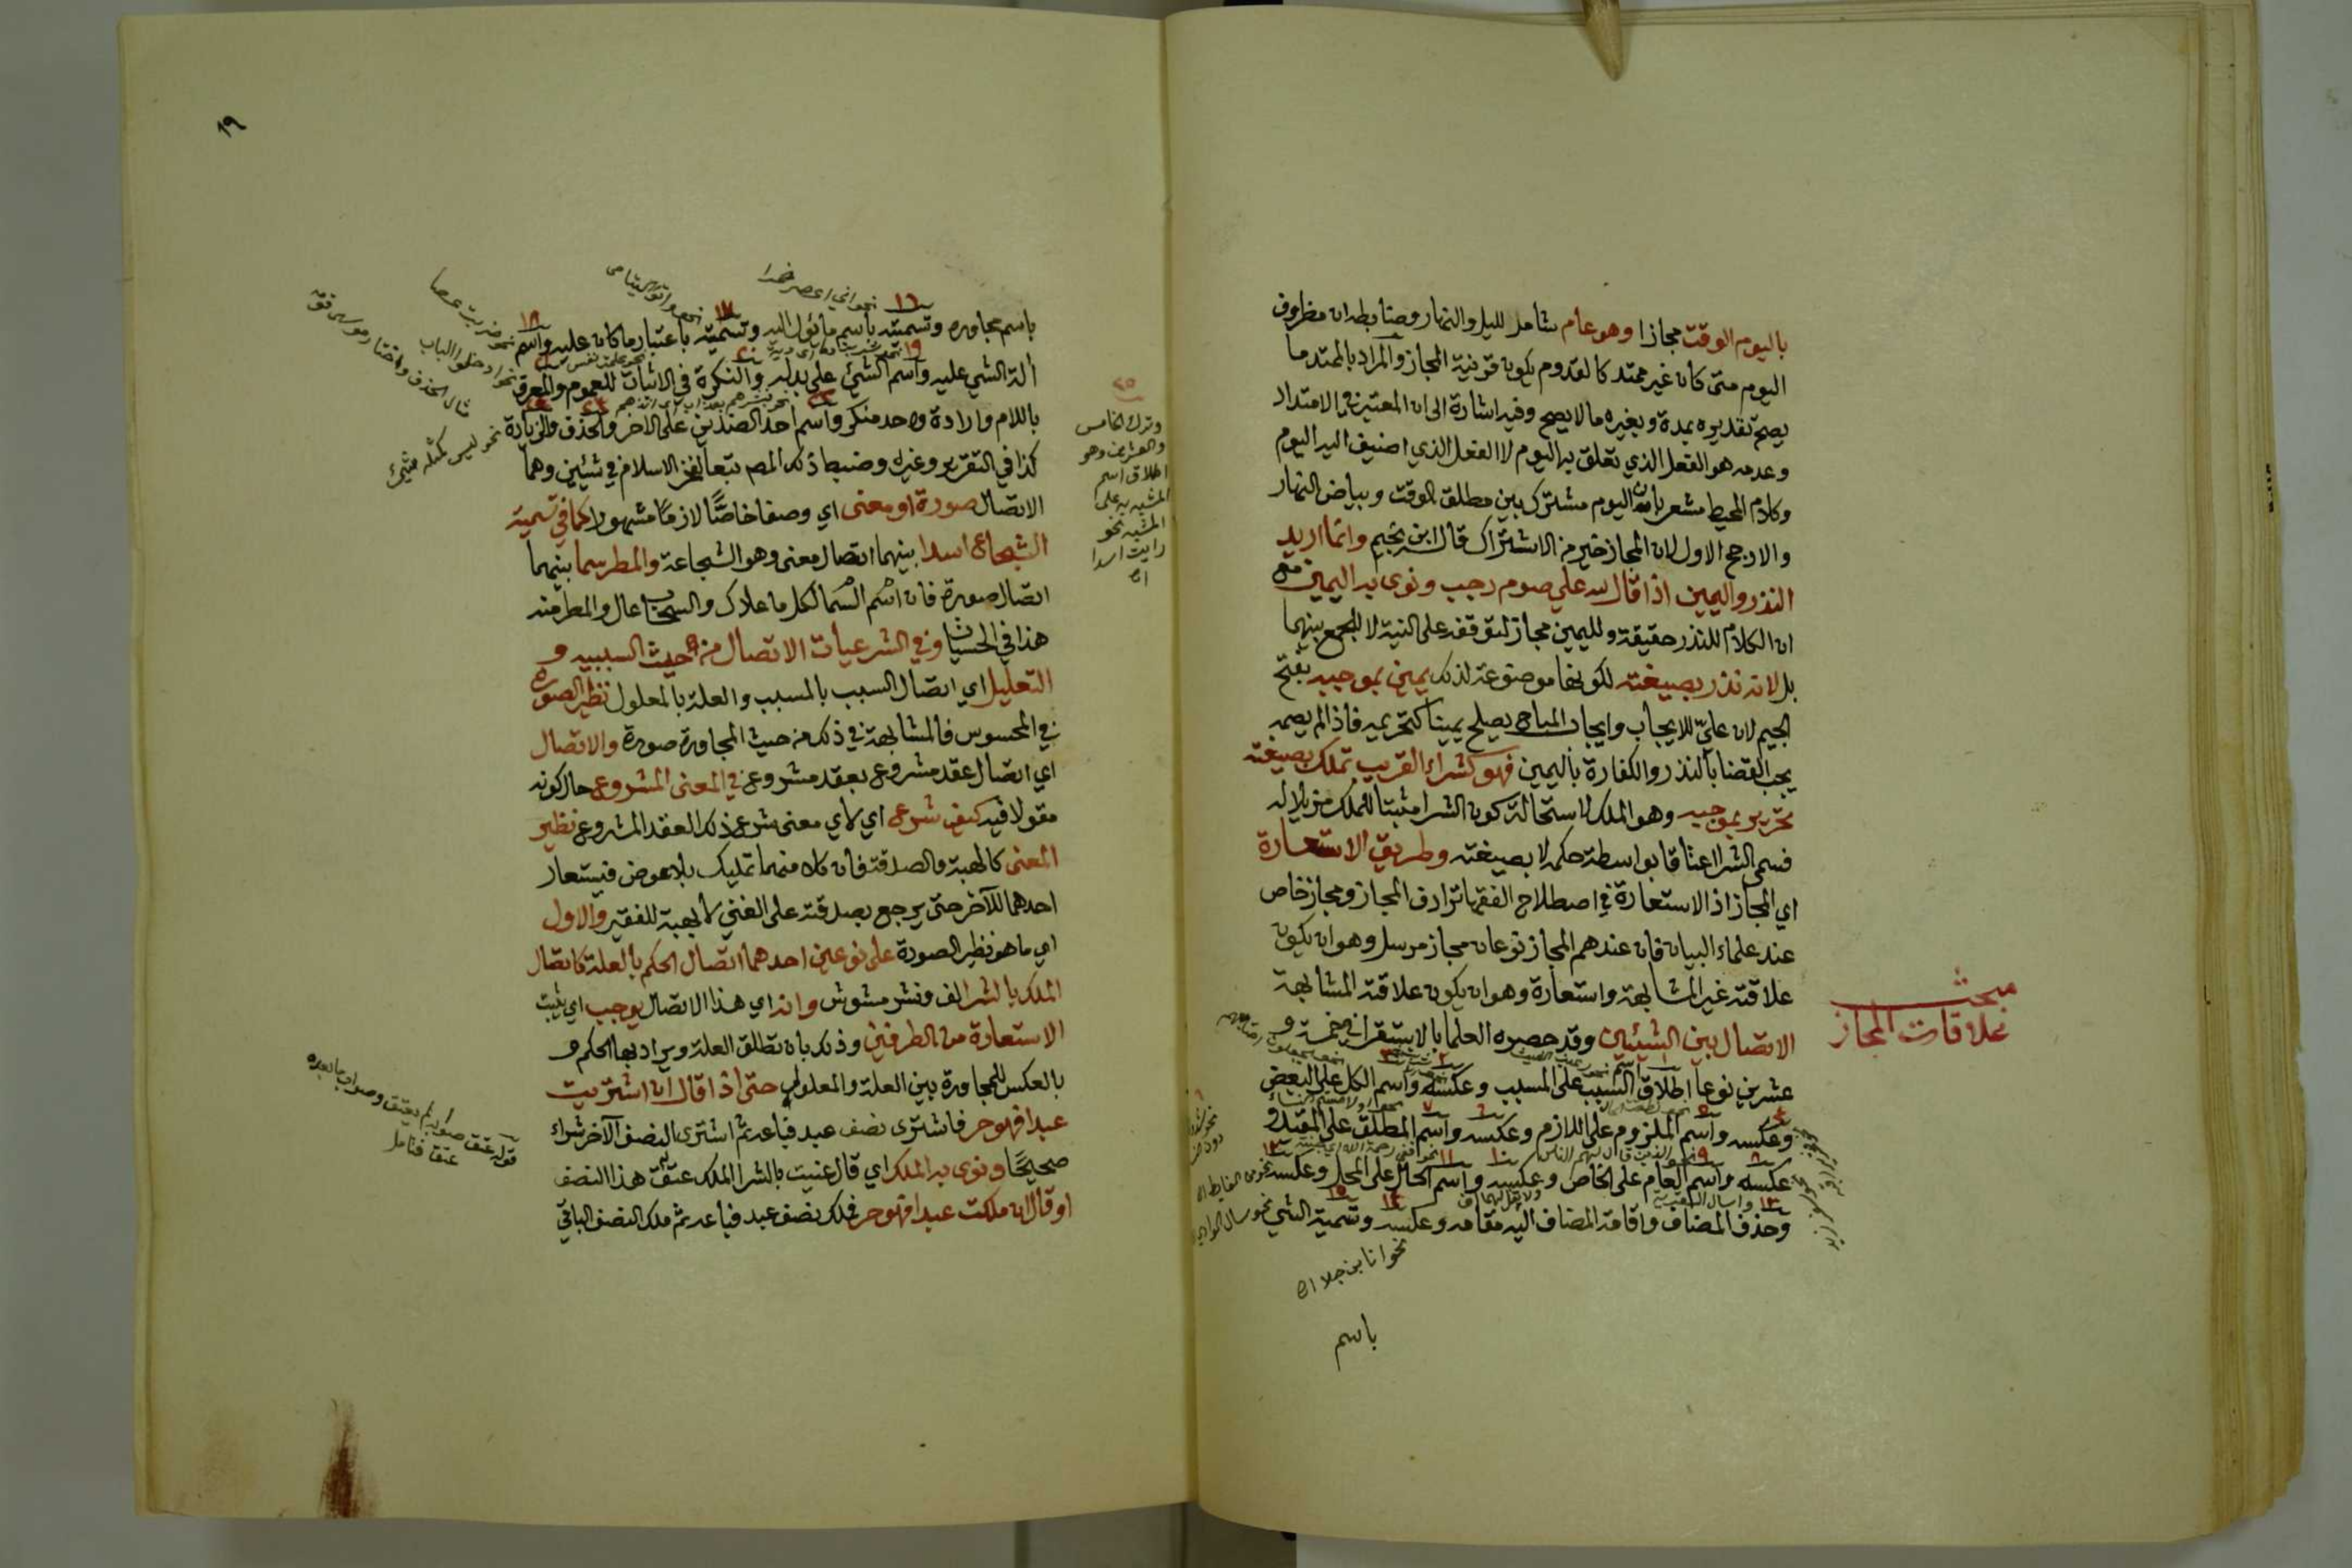 باليوم الوقت مجازا وهو عام شامل لليل والنهار وضابطه ان مظروف
اليوم متى كان غير ممتد كالقدوم يكون قرنية المجاز والمراد بالممتد ما
يصح تقديره بمدة وبغيره ما لا يصح وفيه اشارة الى ان المعتبر في الامتداد
وعدمه هو الفعل الذي تعلق به اليوم لا الفعل الذي اضيف اليه اليوم
وكلام المحيط مشعر بان اليوم مشترك بين مطلق الوقت وبياض النهار
والارجح الاول لان المجاز خير من الاشتراك قال ابن نجيم وانما اريد
النذر واليمين اذا قال لله علي صوم رجب ونوى به اليمين مع
ان الكلام للنذر حقيقة ولليمين مجاز لتوقفه على النية لا للجمع بينهما
بل لانه نذر بصيغته لكونها موضوعة لذلك يمين بموجبه بفتح
الجيم لان عليّ للايجاب وايجاب المباح يصلح يمينا كتحريمه فاذا لم يصمه
يجب القضا بالنذر والكفارة باليمين فهو كشراء القريب تملك بصيغته
تحرير بموجبه وهو الملك لاستحالة كون الشرا مثبتا للملك مزيلا له
فسمى الشرا اعتاقا بواسطة حكمه لا بصيغته وطريق الاستعارة
اي المجاز اذ الاستعارة في اصطلاح الفقها ترادف المجاز ومجاز خاص
عند علماء البيان فان عندهم المجاز نوعان مجاز مرسل وهو ان يكون
علاقته غير المشابهة واستعارة وهو ان يكون علاقته المشابهة
الاتصال بين الشيئين وقد حصره العلما بالاستقرا في خمسة و
عشرين نوعا اطلاق اسم السبب على المسبب وعكسه واسم الكل على البعض
وعكسه واسم الملزوم على اللازم وعكسه واسم المطلق على المقيد و
عكسه واسم العام على الخاص وعكسه واسم الحال على المحل وعكسه
وحذف المضاف واقامة المضاف اليه مقامه وعكسه وتسمية الشي
نحو سال الوادي
نحو انا ابن جلا اه
باسم
مبحث
علاقات المجاز
١٩
باسم مجاوره وتسميته باسم مايئول اليه وتسميته باعتبار ما كان عليه واسم
الة الشي عليه واسم الشئ على بدله والنكرة في الاثبات للعموم والمعرف
باللام وارادة واحد منكر واسم احد الضدين على الاخر والحذف والزيادة
كذا في التقرير وغيره وضبط ذلك المص تبعا لفخر الاسلام في شيئين وهما
الاتصال صورة او معنى اي وصفا خاصًّا لازمًا مشهورا كما في تسمية
الشجاع اسدا بينهما اتصال معنى وهو الشجاعة والمطر سما بينهما
اتصال صورة فان اسم السما لكل ما علاك والسحاب عال والمطر منه
هذا في الحسيات وفي الشرعيات الاتصال من حيث السببيه و
التعليل اي اتصال السبب بالمسبب والعلة بالمعلول نظير الصورة
في المحسوس فالمشابهة في ذلك من حيث المجاورة صورة والاتصال
اي اتصال عقد مشروع بعقد مشروع في المعنى المشروع حال كونه
مقولا فيه كيف شرع اي لاي معنى شرع ذلك العقد المشروع نظير
المعنى كالهبة والصدقة فان كلا منهما تمليك بلا عوض فيستعار
احدهما للآخر حتى يرجع بصدقته على الغني لا بهبة للفقير والاول
اي ما هو نظير الصورة على نوعين احدهما اتصال الحكم بالعلة كاتصال
الملك بالشرا لف ونشر مشوش وانه اي هذا الاتصال يوجب اي يثبت
الاستعارة من الطرفين وذلك بان تطلق العلة ويراد بها الحكم و
بالعكس للمجاورة بين العلة والمعلول حتى اذا قال ان اشتريت
عبدا فهو حر فاشترى نصف عبد فباعه ثم اشترى النصف الآخر شراء
صحيحًا ونوى به الملك اي قال عنيت بالشرا الملك عتق هذا النصف
او قال ان ملكت عبدا فهو حر فملك نصف عبد فباعه ثم ملك النصف الباقي
نحو اني اعصر خمرا
نحو واتوا اليتامى
نحو ادخلوا الباب
نحو ليس كمثله شئ
٢٥
وترك الخامس
والعشرين وهو
اطلاق اسم
المشبه به على
المشبه نحو
رايت اسدا
اه
قوله عتق صوابه لم يعتق وصوابه ما بعده
عتق فتامل